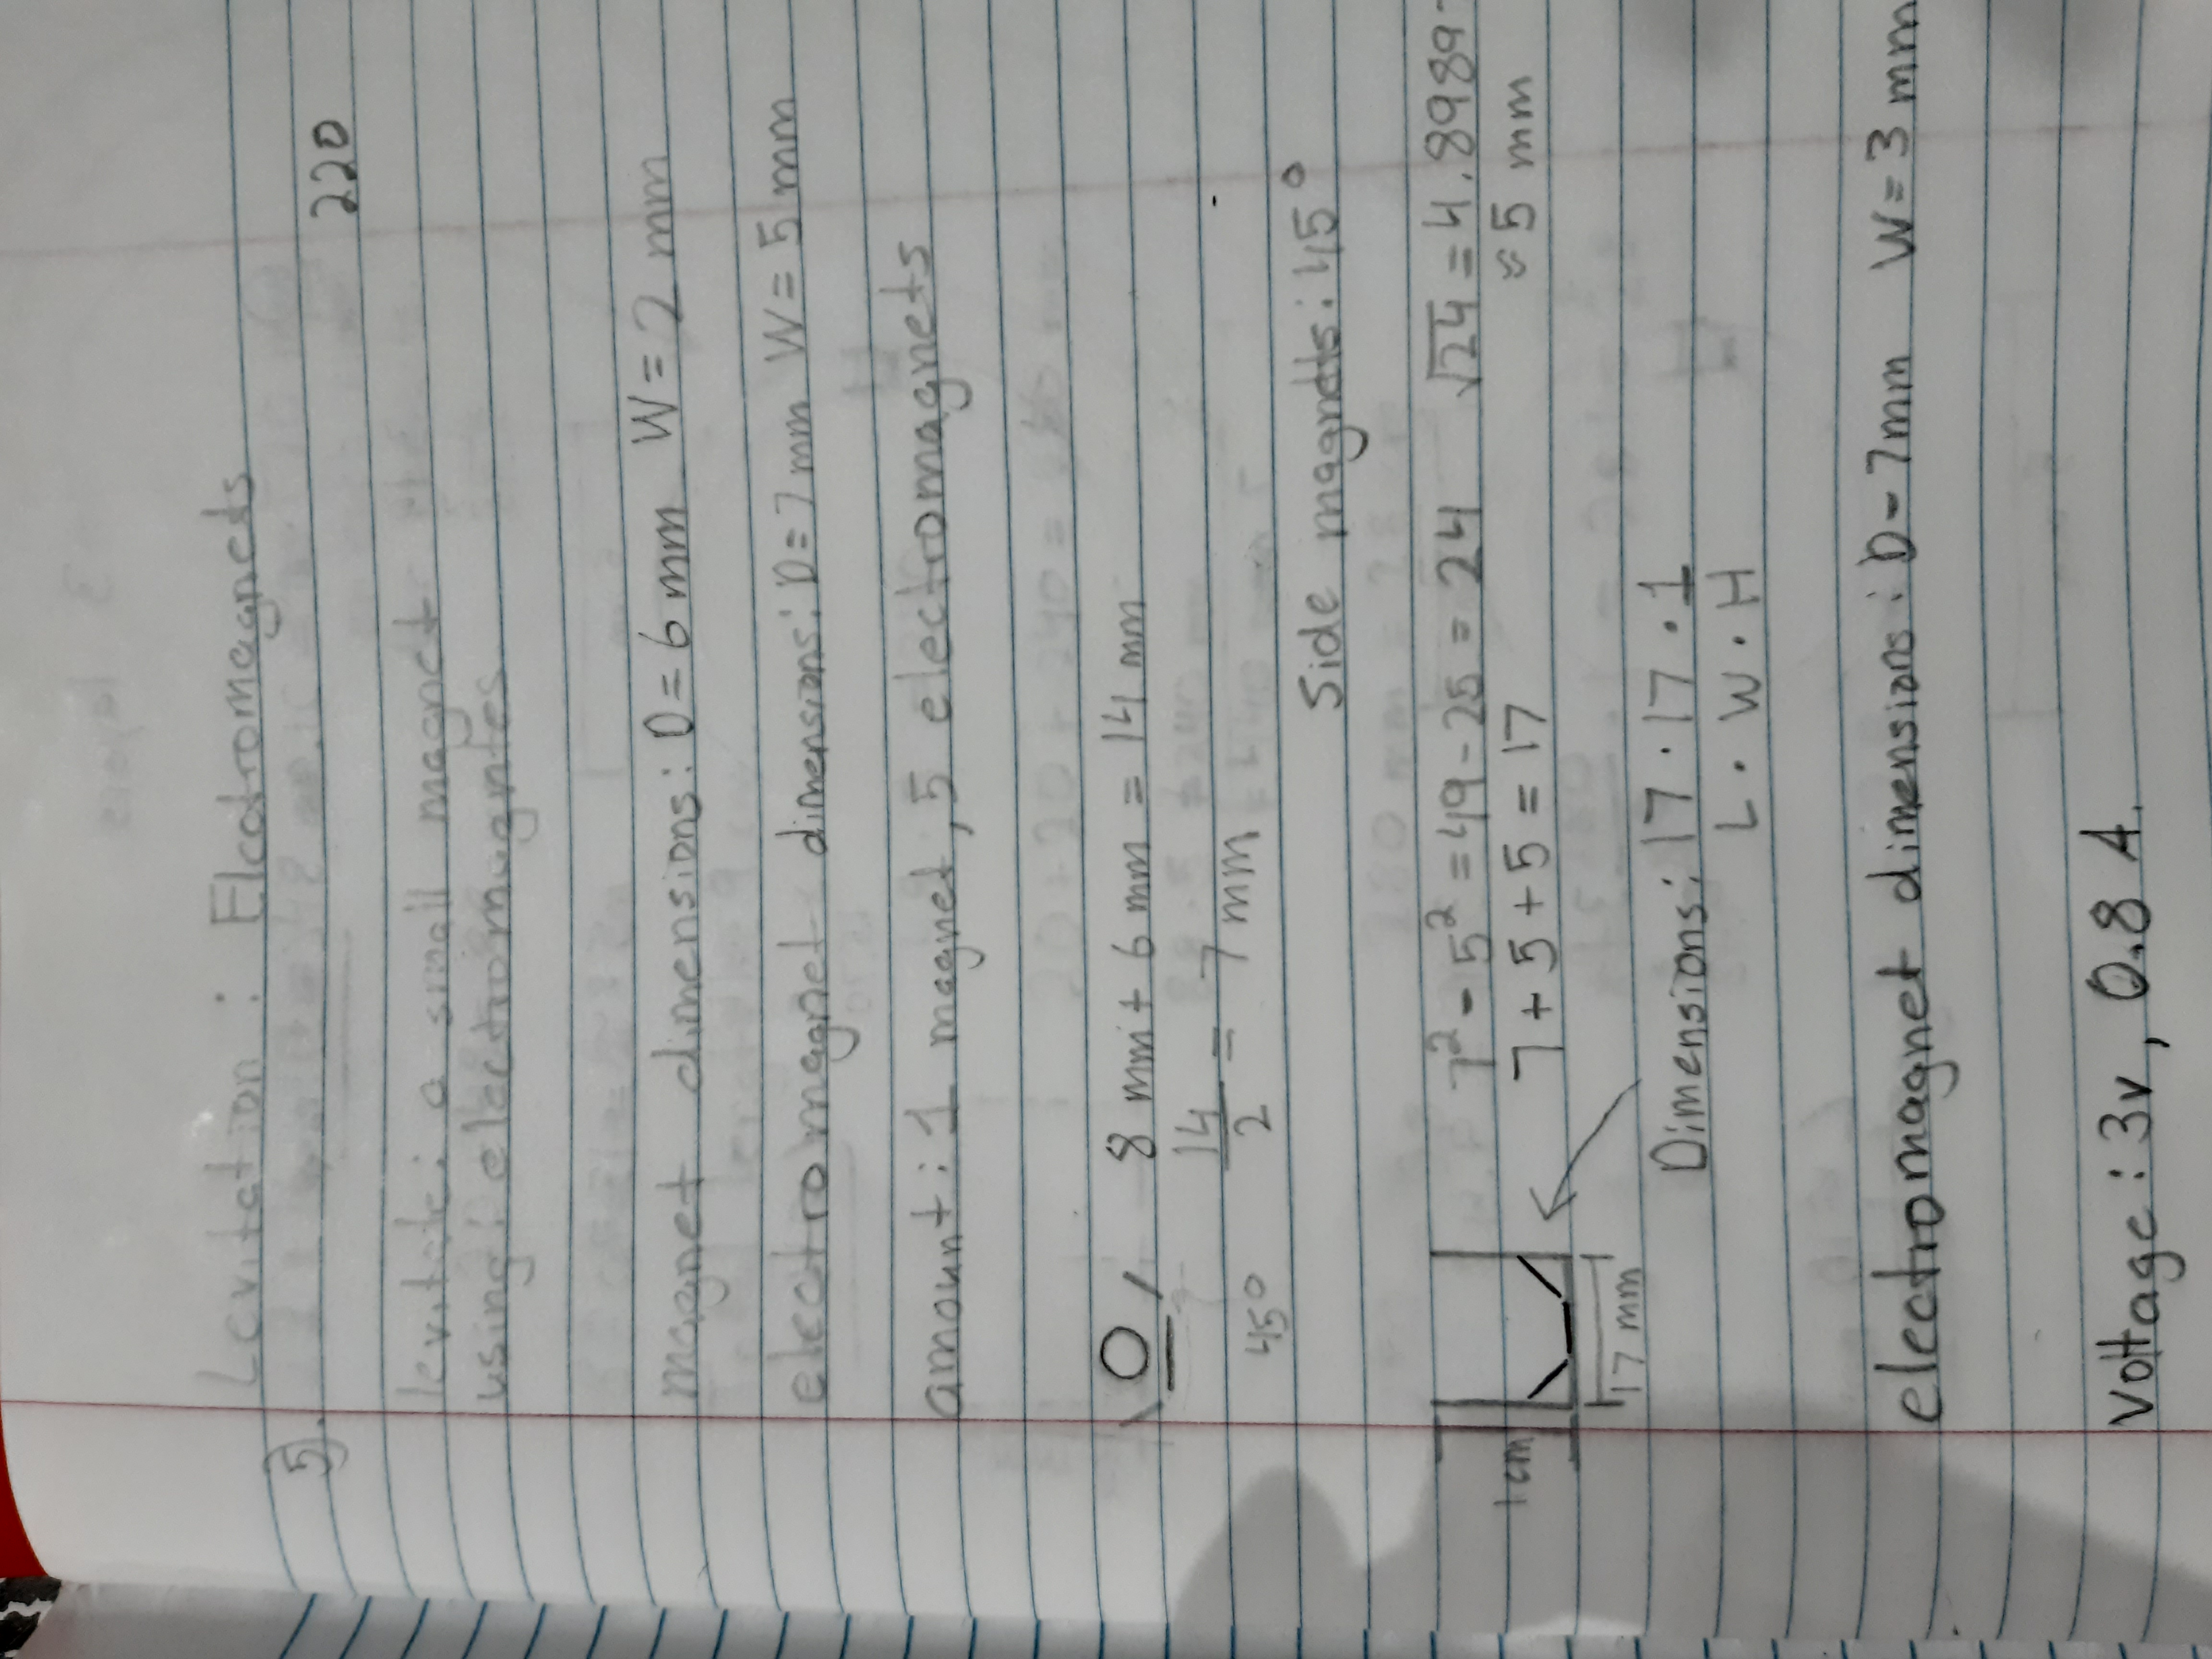 Levitation : Electromagnets
5. 220
levitate: a small magnet
using electromagntes
magnet dimensions: D=6mm W=2 mm
electromagnet dimensions: D=7mm W=5mm
amount: 1 magnet, 5 electromagnets
8 mm + 6 mm = 14 mm
14/2 = 7 mm
45°
Side magnets: 45°
7² - 5² = 49 - 25 = 24 √24 = 4.8989
7 + 5 + 5 = 17 ≈ 5 mm
1cm
17 mm
Dimensions: 17 · 17 · 1
L · W · H
electromagnet dimensions: D-7mm W=3mm
Voltage: 3v, 0.8 A.